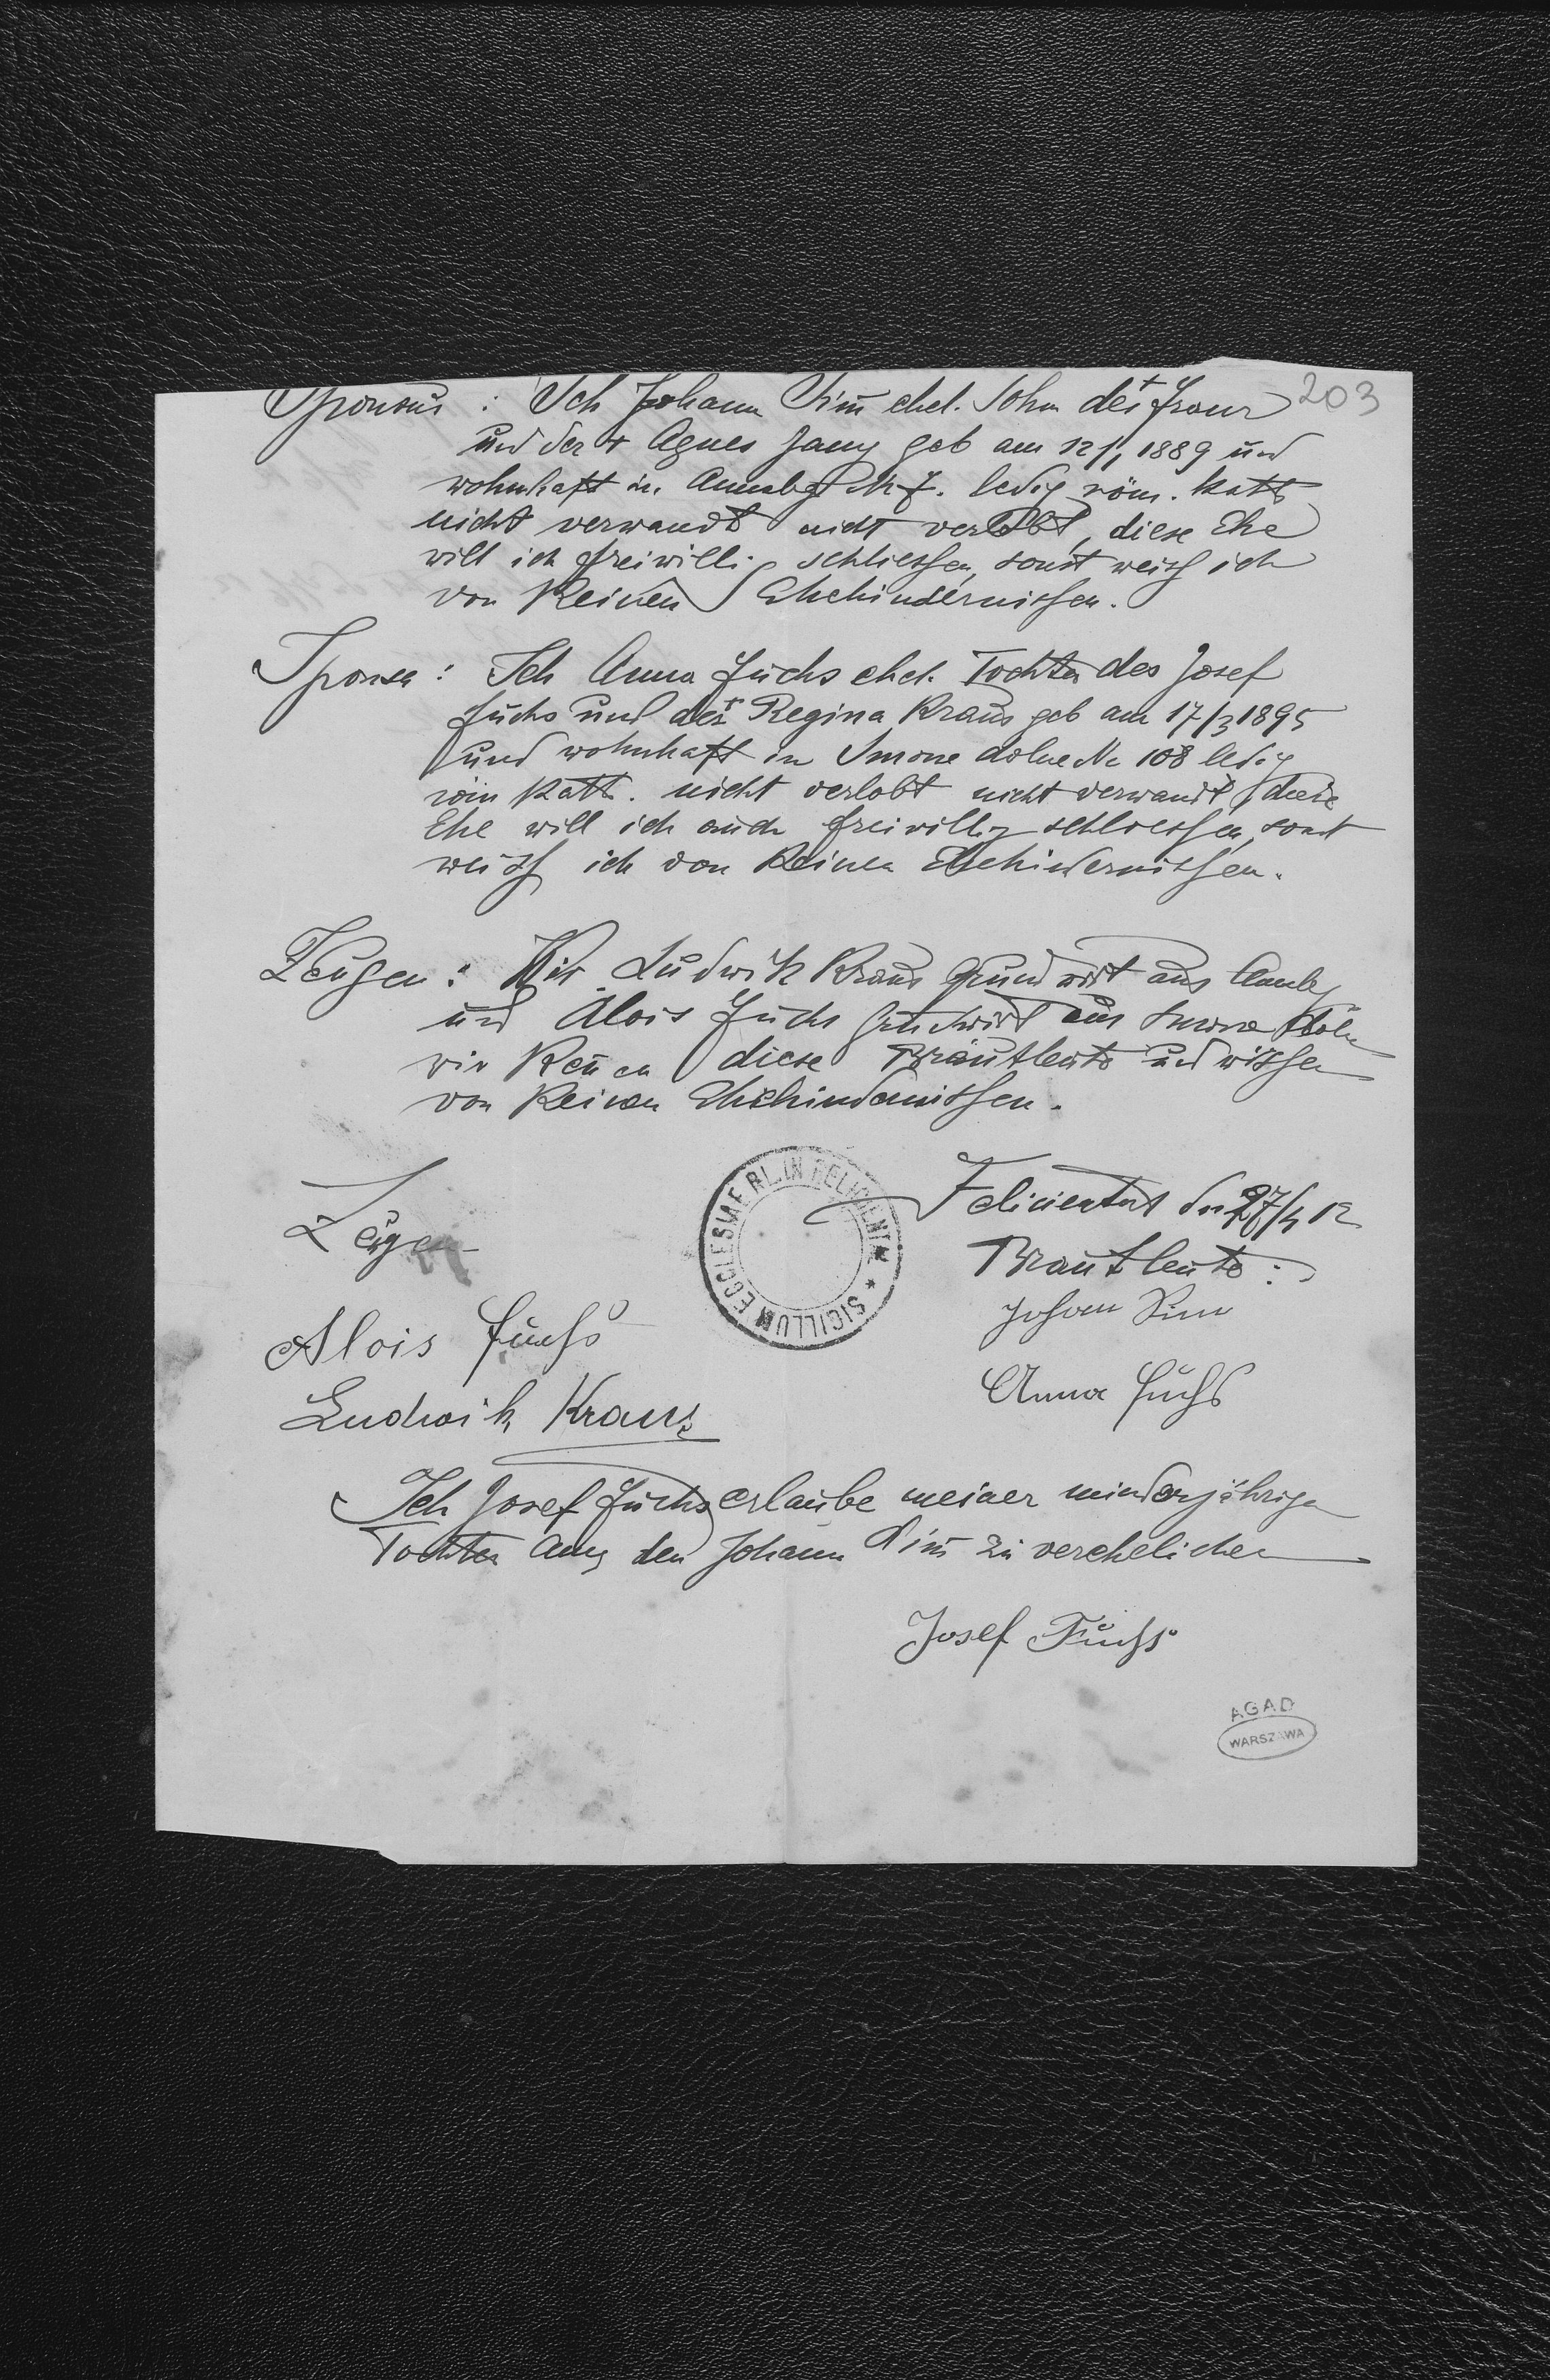 203
Sponsus : Ich Johann Sim̄ ehel. Sohn des + Franz
und der + Agnes Jany geb am 12/1 1889 und
wohnhaft in Annabg N 7. ledig röm. kath
nicht verwandt nicht verlobt, diese Ehe
will ich freiwillig schliessen, sonst weiss ich
von Keinen Ehehindernissen.
Sponsa : Ich Anna Fuchs ehel. Tochter des Josef
Fuchs und der + Regina Kraus geb am 17/3 1895
und wohnhaft in Smorze dolne No 108 ledig
röm kath. nicht verlobt nicht verwandt, diese
Ehe will ich auch freiwillig schliessen, sonst
weiss ich von Keinen Ehehindernissen.
Zeugen : Wir Ludwik Kraus Grundwirt aus Annabg
und Alois Fuchs Grundwirt aus Smorze dolne
wir Ken̄en diese Brautleute und wissen
von Keinen Ehehindernissen.
SIGILLUM ECCLESIAE RL. IN FELICIENTAL
Felicientat den 27/4 12
Zeugen
Brautleute :
Johann Sim
Alois Fuchs
Anna Fuchs
Ludwik Kraus
Ich Josef Fuchs erlaube meiner minderjährigen
Tochter Anna den Johann Sim̄ zu verehelichen
Josef Fuchs
AGAD
WARSZAWA